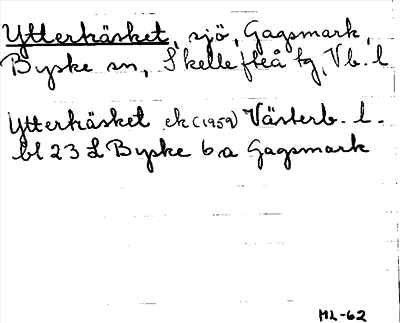 Ytterkäsket, sjö, Gagsmark,
Byske sn, Skellefteå tg, Vb. l
Ytterkäsket ek (1959) Västerb. l.
bl 23 L Byske 6 a Gagsmark
ML-62